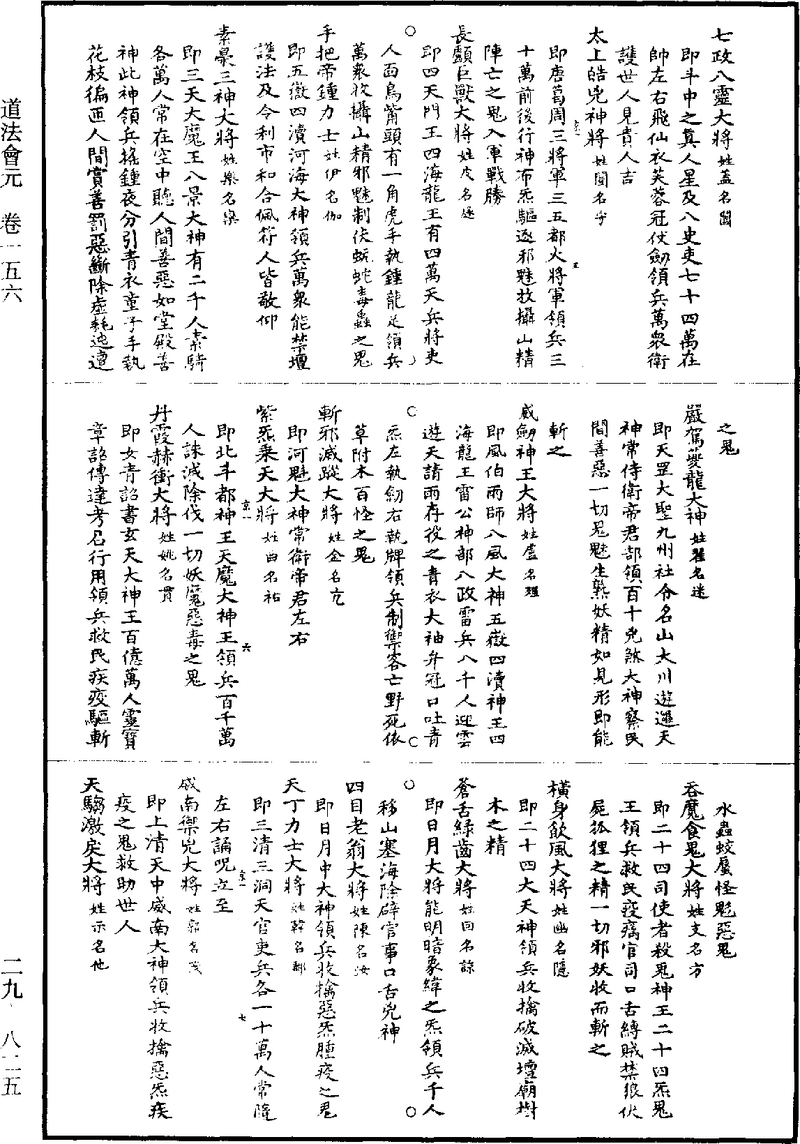 七政八靈大將姓蓋名圖
即斗中之真人星及八史吏七十四萬在
帥左右飛仙衣芙蓉冠伏劒領兵萬衆衛
護世人見貴人吉
太上皓兇神將姓閻名字
即唐葛周三將軍三五都火將軍領兵三
十萬前後行神布炁驅逐邪魅收攝山精
陣亡之鬼入軍戰勝
長顱巨獸大將姓皮名逐
即四天門王四海龍王有四萬天兵將吏
人面鳥觜頭有一角虎手執鍾龍足領兵
萬衆收攝山精邪魅制伏蚖蛇毒蟲之鬼
手把帝鍾力士姓伊名伽
即五嶽四瀆河海大神領兵萬衆能禁壇
護法及令利市和合佩符人皆敬仰
素梟三神大將姓樂名樂
即三天大魔王八景大神有二千人素騎
各萬人常在空中聽人間善惡如堂殿善
神此神領兵搖鍾夜分引青衣童子手執
花枝徧迊人間賞善罰惡斷除虛耗迍邅
之鬼
嚴駕夔龍大神姓瞿名迷
即天罡大聖九州社令名山大川遊邏天
神常侍衛帝君部領百十兇煞大神察民
間善惡一切鬼魅生祟妖精如見形即能
斬之
威劒神王大將姓盧名
即風伯雨師八風大神五嶽四瀆神王四
海龍王雷公神部八政雷兵八千人迎雲
遊天請雨存役之青衣大袖弁冠口吐青
炁左執劒右執牌領兵制禦客亡野死依
草附木百怪之鬼
斬邪滅蹤大將姓金名亢
即河魁大神常衛帝君左右
紫炁乘天大將姓曲名祐
即北斗都神王天魔大神王領兵百千萬
人誅滅除伐一切妖魔惡毒之鬼
丹霞赫衝大將姓姚名貫
即女青詔書玄天大神王百億萬人靈寶
章詔傳達考召行用領兵救民疾疫驅斬
水蟲蛟蜃怪魁惡鬼
吞魔食鬼大將姓支名方
即二十四司使者殺鬼神王二十四炁鬼
王領兵救民疫癘官司口舌縛賊禁狼伏
屍狐狸之精一切邪妖收而斬之
橫身飲風大將姓幽名隱
即二十四大天神領兵收擒破滅壇廟樹
木之精
蒼舌緑齒大將姓回名諒
即日月大將能明暗象緯之炁領兵千人
移山塞海除辟官事口舌兇神
四目老翁大將姓陳名汝
即日月中大神領兵收擒惡炁腫疫之鬼
天丁力士大將姓韓名鄰
即三清三洞天官吏兵各一十萬人常隨
左右誦呪立至
威南禦兇大將姓郭名茂
即上清天中威南大神領兵收擒惡炁疾
疫之鬼救助世人
天騶激戾大將姓示名他
道法會元 卷一五六
二九·八二五